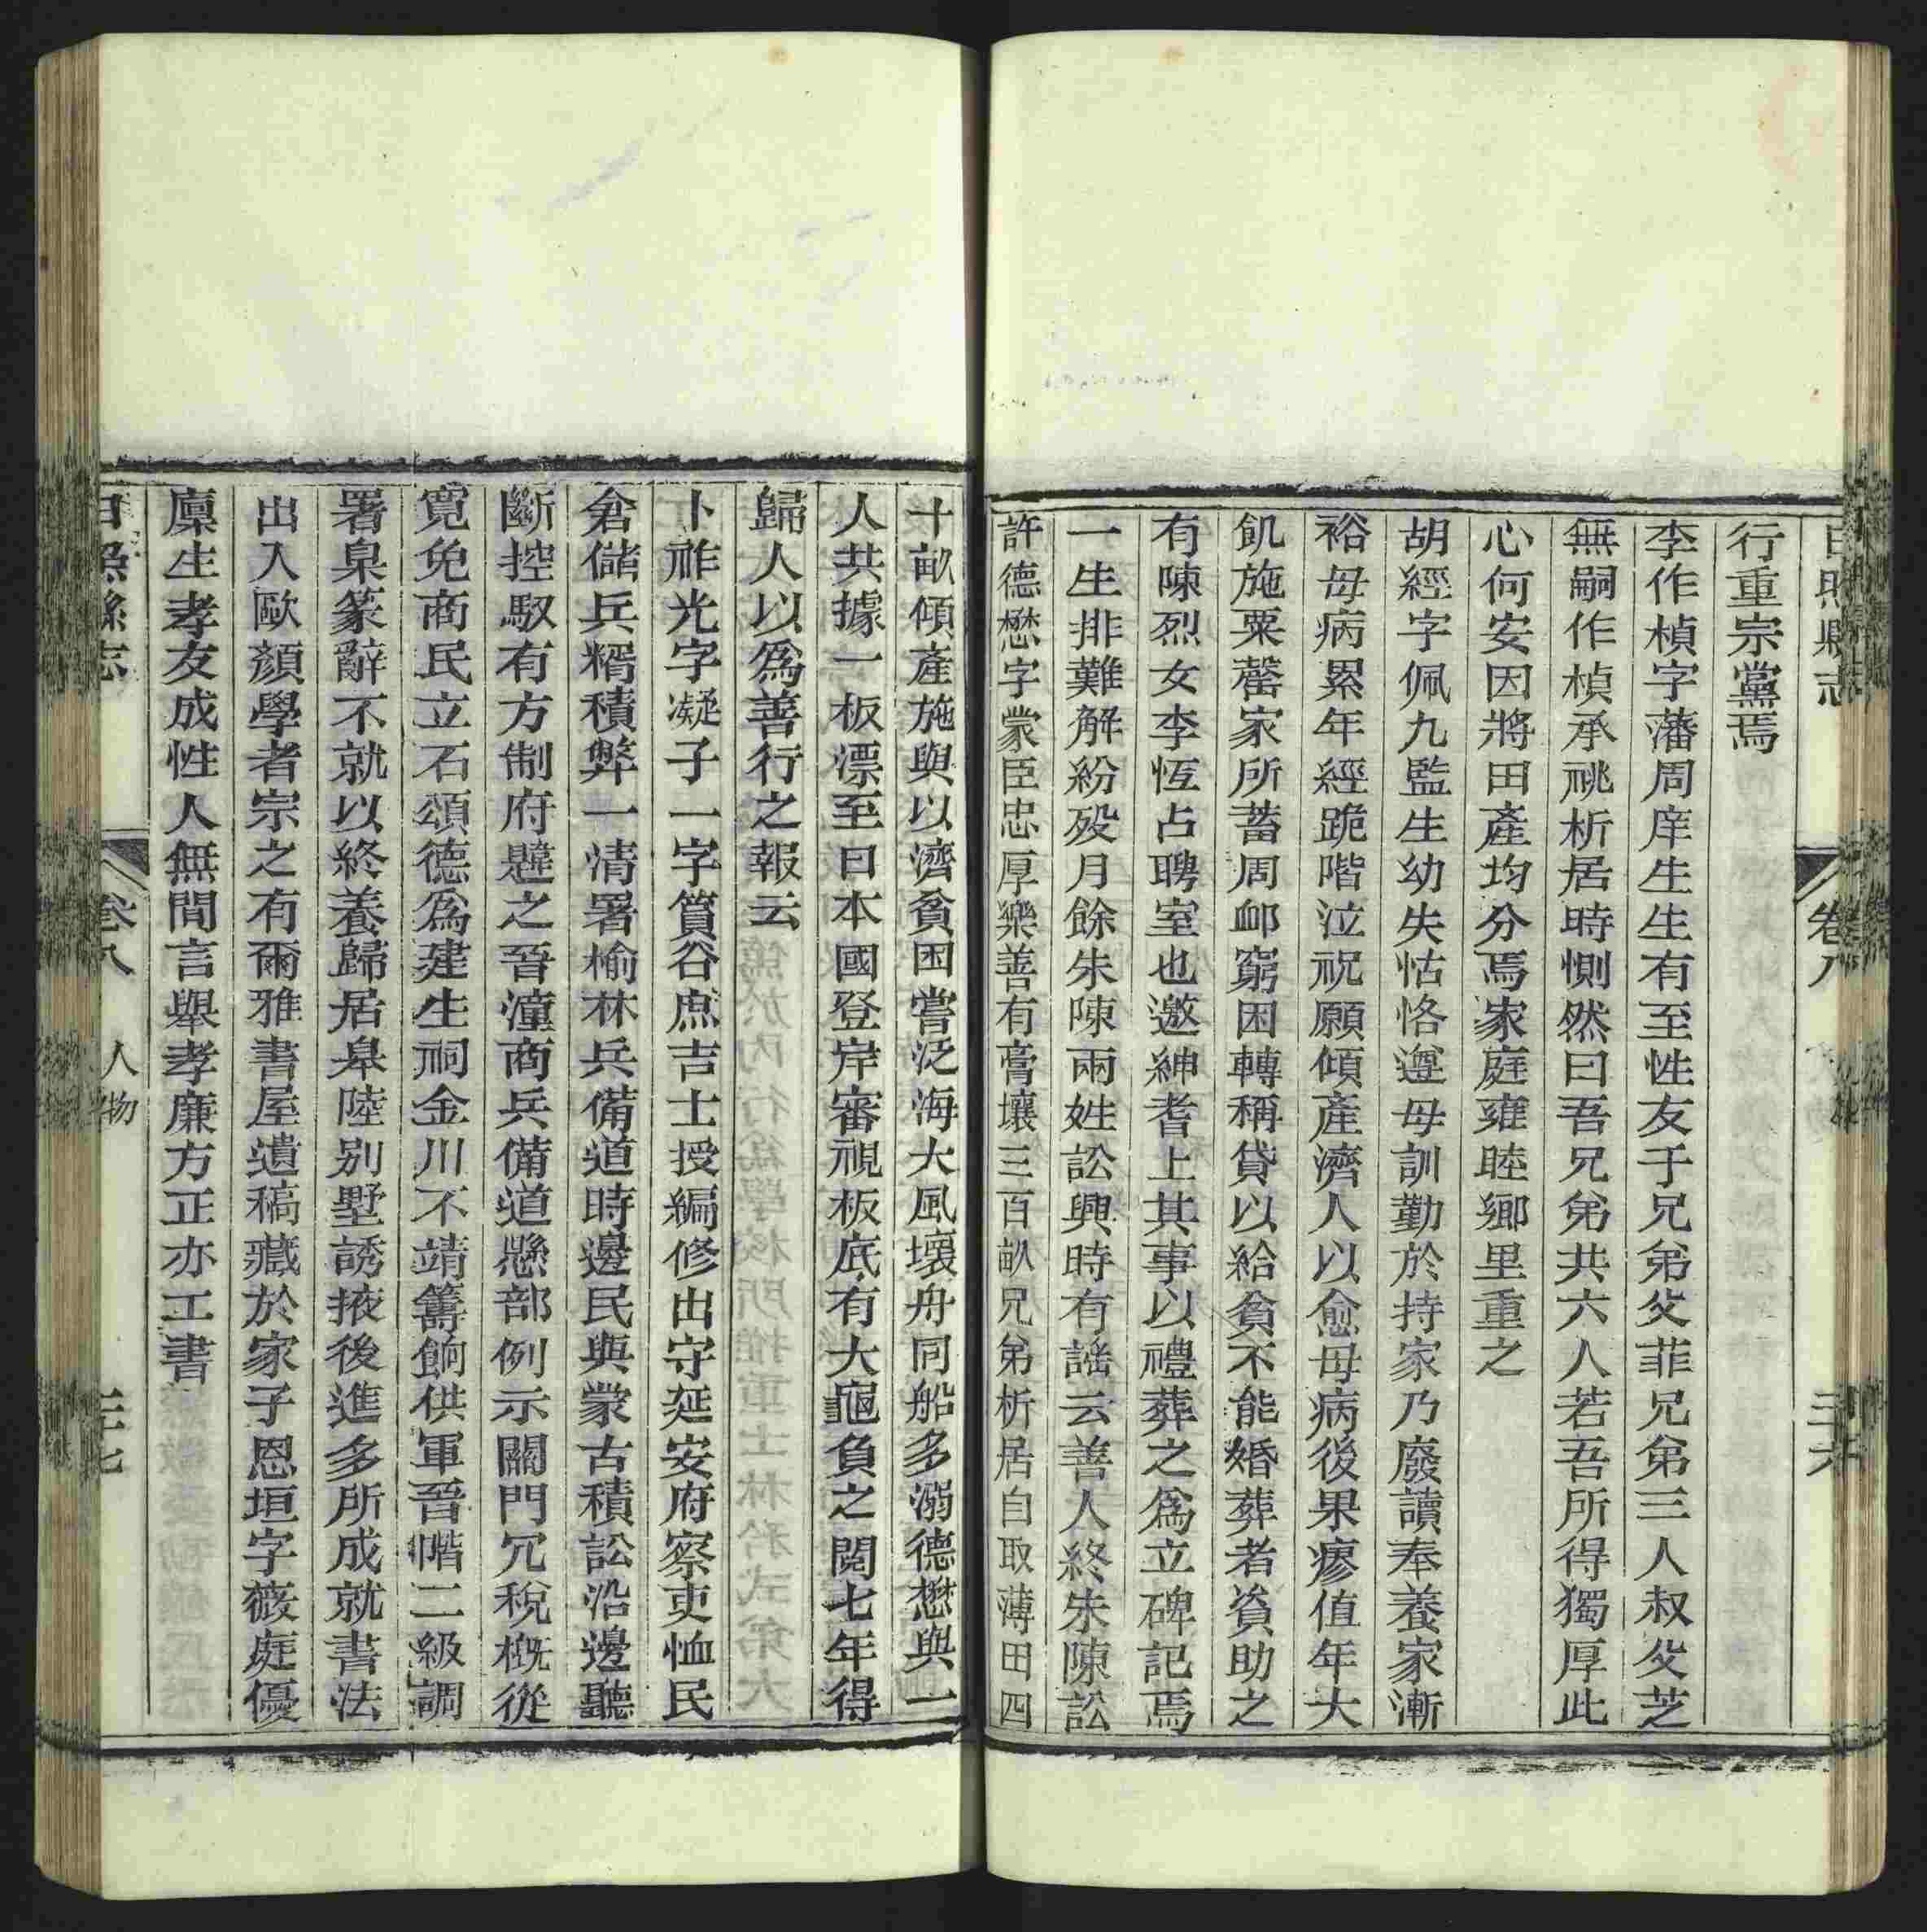 日照縣志 卷八 三六
行重宗黨焉
李作楨字藩周庠生生有至性友于兄弟父菲兄弟三人叔父芝
無嗣作楨承祧析居時惻然曰吾兄弟共六人若吾所得獨厚此
心何安因將田產均分焉家庭雍睦鄉里重之
胡經字佩九監生幼失怙恪遵母訓勤於持家乃廢讀奉養家漸
裕母病累年經跪階泣祝願傾產濟人以愈母病後果瘳值年大
飢施粟罄家所蓄周邮窮困轉稱貸以給貧不能婚葬者資助之
有陳烈女李恆占聘室也邀紳耆上其事以禮葬之爲立碑記焉
一生排難解紛歿月餘朱陳兩姓訟興時有謠云善人終朱陳訟
許德懋字蒙臣忠厚樂善有膏壤三百畝兄弟析居自取薄田四
十畝傾產施與以濟貧困嘗泛海大風壞舟同船多溺德懋與一
人共據一板漂至日本國登岸審視板底有大龜負之閱七年得
歸人以爲善行之報云
卜祚光字凝子一字篔谷庶吉士授編修出守延安府察吏恤民
倉儲兵糈積弊一清署榆林兵備道時邊民與蒙古積訟沿邊聽
斷控馭有方制府韙之晉潼商兵備道懸部例示關門冗稅槪從
寬免商民立石頌德爲建生祠金川不靖籌餉供軍晉階二級調
署臬篆辭不就以終養歸居皋陸別墅誘掖後進多所成就書法
出入歐顏學者宗之有爾雅書屋遺稿藏於家子恩垣字薇庭優
廩生孝友成性人無間言舉孝廉方正亦工書
日照縣志 卷八 人物 三七